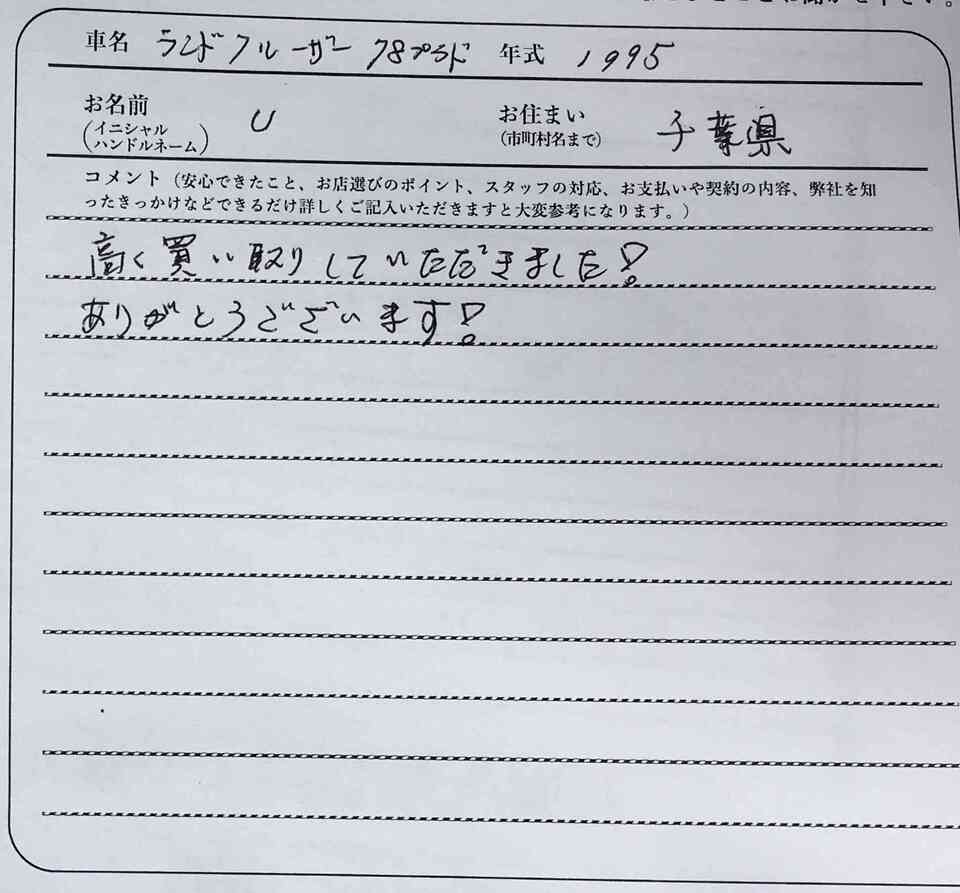 車名 ランドクルーザー 78プラド 年式 1995
お名前 (イニシャル ハンドルネーム) U お住まい (市町村名まで) 千葉県
コメント（安心できたこと、お店選びのポイント、スタッフの対応、お支払いや契約の内容、弊社を知
ったきっかけなどできるだけ詳しくご記入いただきますと大変参考になります。）
高く買い取りしていただきました！
ありがとうございます！